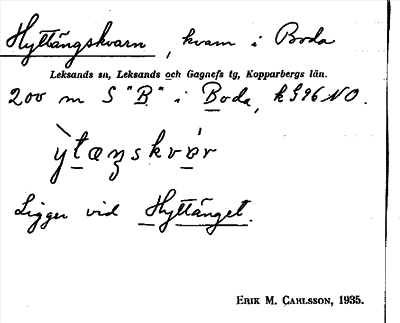 Hyttängskvarn, kvarn i Boda
Leksands sn, Leksands och Gagnefs tg, Kopparbergs län.
200 m S "B" i Boda, k G96 NO.
Ligger vid Hyttänget.
ERIK M. CARLSSON, 1935.